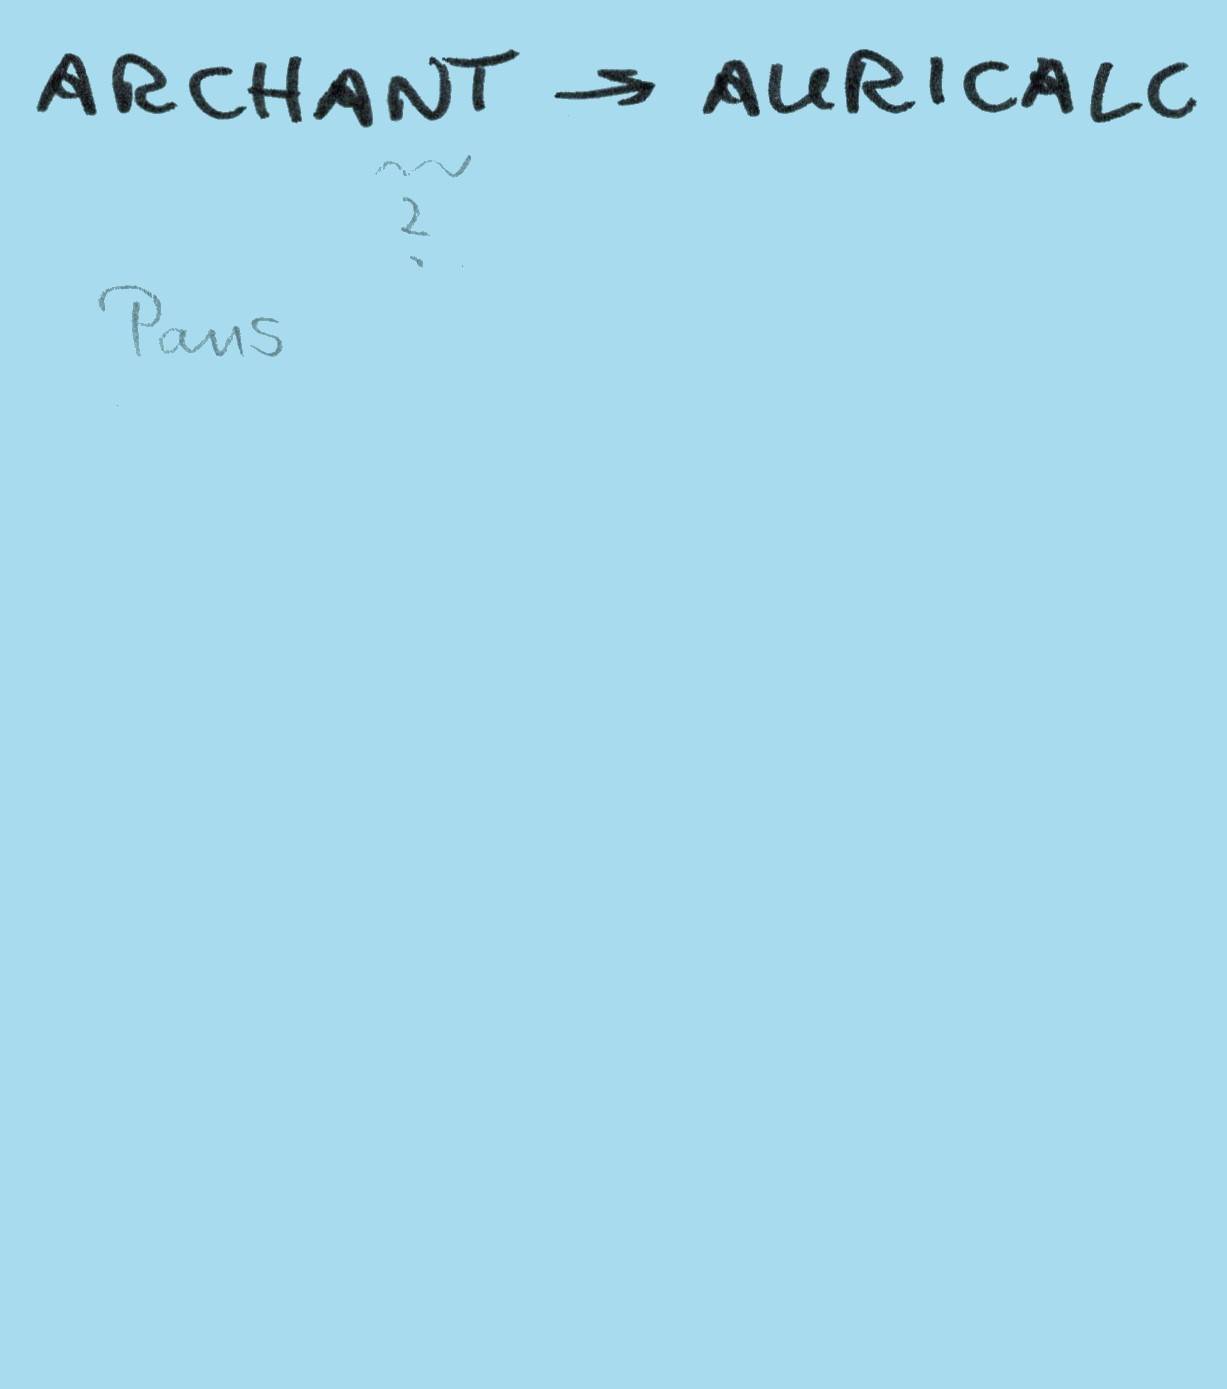 ARCHANT → AURICALC
?
Paris